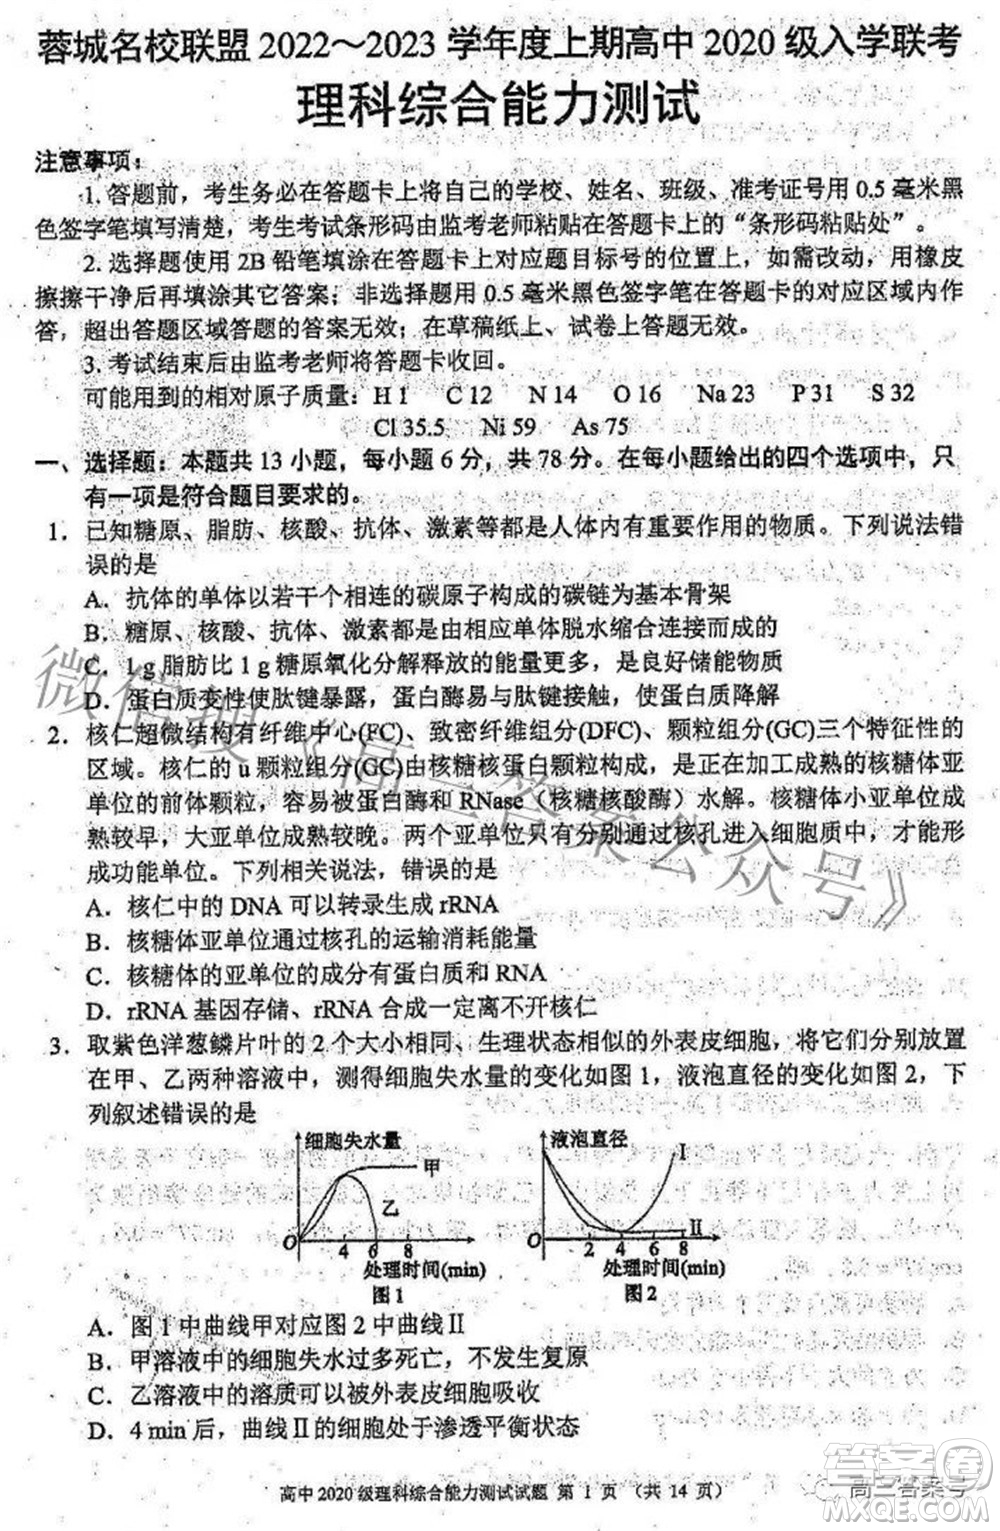 蓉城名校联盟 2022～2023 学年度上期高中 2020 级入学联考
理科综合能力测试
注意事项：
1. 答题前，考生务必在答题卡上将自己的学校、姓名、班级、准考证号用 0.5 毫米黑
色签字笔填写清楚，考生考试条形码由监考老师粘贴在答题卡上的“条形码粘贴处”。
2. 选择题使用 2B 铅笔填涂在答题卡上对应题目标号的位置上，如需改动，用橡皮
擦擦干净后再填涂其它答案；非选择题用 0.5 毫米黑色签字笔在答题卡的对应区域内作
答，超出答题区域答题的答案无效；在草稿纸上、试卷上答题无效。
3. 考试结束后由监考老师将答题卡收回。
可能用到的相对原子质量：H 1 C 12 N 14 O 16 Na 23 P 31 S 32
Cl 35.5 Ni 59 As 75
一、选择题：本题共 13 小题，每小题 6 分，共 78 分。在每小题给出的四个选项中，只
有一项是符合题目要求的。
1．已知糖原、脂肪、核酸、抗体、激素等都是人体内有重要作用的物质。下列说法错
误的是
A．抗体的单体以若干个相连的碳原子构成的碳链为基本骨架
B．糖原、核酸、抗体、激素都是由相应单体脱水缩合连接而成的
C．1 g 脂肪比 1 g 糖原氧化分解释放的能量更多，是良好储能物质
D．蛋白质变性使肽键暴露，蛋白酶易与肽键接触，使蛋白质降解
2．核仁超微结构有纤维中心(FC)、致密纤维组分(DFC)、颗粒组分(GC)三个特征性的
区域。核仁的 u 颗粒组分(GC)由核糖核蛋白颗粒构成，是正加工成熟的核糖体亚
单位的前体颗粒，容易被蛋白酶和 RNase（核糖核酸酶）水解。核糖体小亚单位成
熟较早，大亚单位成熟较晚。两个亚单位只有分别通过核孔进入细胞质中，才能形
成功能单位。下列相关说法，错误的是
A．核仁中的 DNA 可以转录生成 rRNA
B．核糖体亚单位通过核孔的运输消耗能量
C．核糖体的亚单位的成分有蛋白质和 RNA
D．rRNA 基因存储、rRNA 合成一定离不开核仁
3．取紫色洋葱鳞片叶的 2 个大小相同、生理状态相似的外表皮细胞，将它们分别放置
在甲、乙两种溶液中，测得细胞失水量的变化如图 1，液泡直径的变化如图 2，下
列叙述错误的是
细胞失水量
甲
乙
O 4 6 8
处理时间(min)
图 1
液泡直径
Ⅰ
Ⅱ
O 2 4 6 8
处理时间(min)
图 2
A．图 1 中曲线甲对应图 2 中曲线Ⅱ
B．甲溶液中的细胞失水过多死亡，不发生复原
C．乙溶液中的溶质可以被外表皮细胞吸收
D．4 min 后，曲线Ⅱ的细胞处于渗透平衡状态
高中 2020 级理科综合能力测试试题 第 1 页 （共 14 页）
微信搜《高三答案公众号》
高三答案号